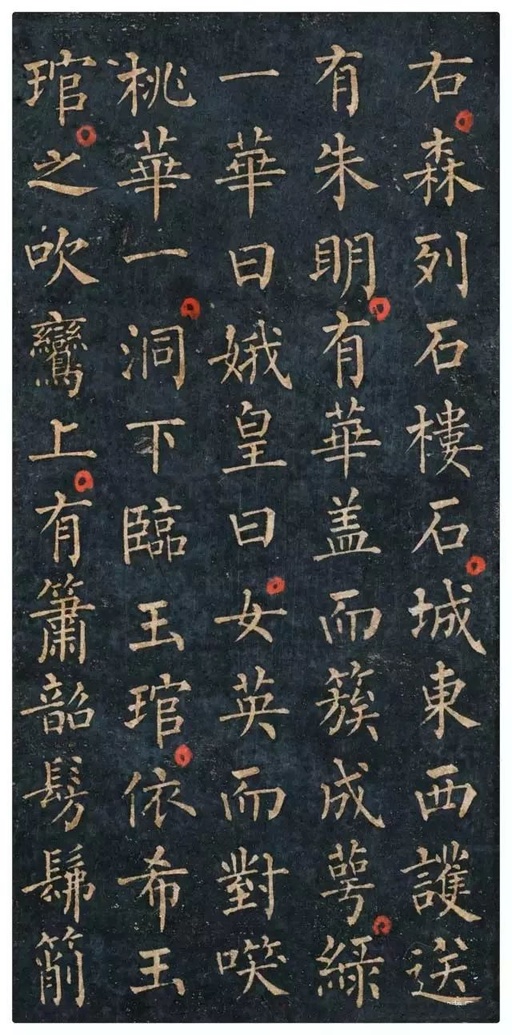 右森列石樓石城東西護送
有朱明有華盖而簇成萼綠
一華曰娥皇曰女英而對喫
桃華一洞下臨玉琯依希玉
琯之吹鸞上有簫韶髣髴箾